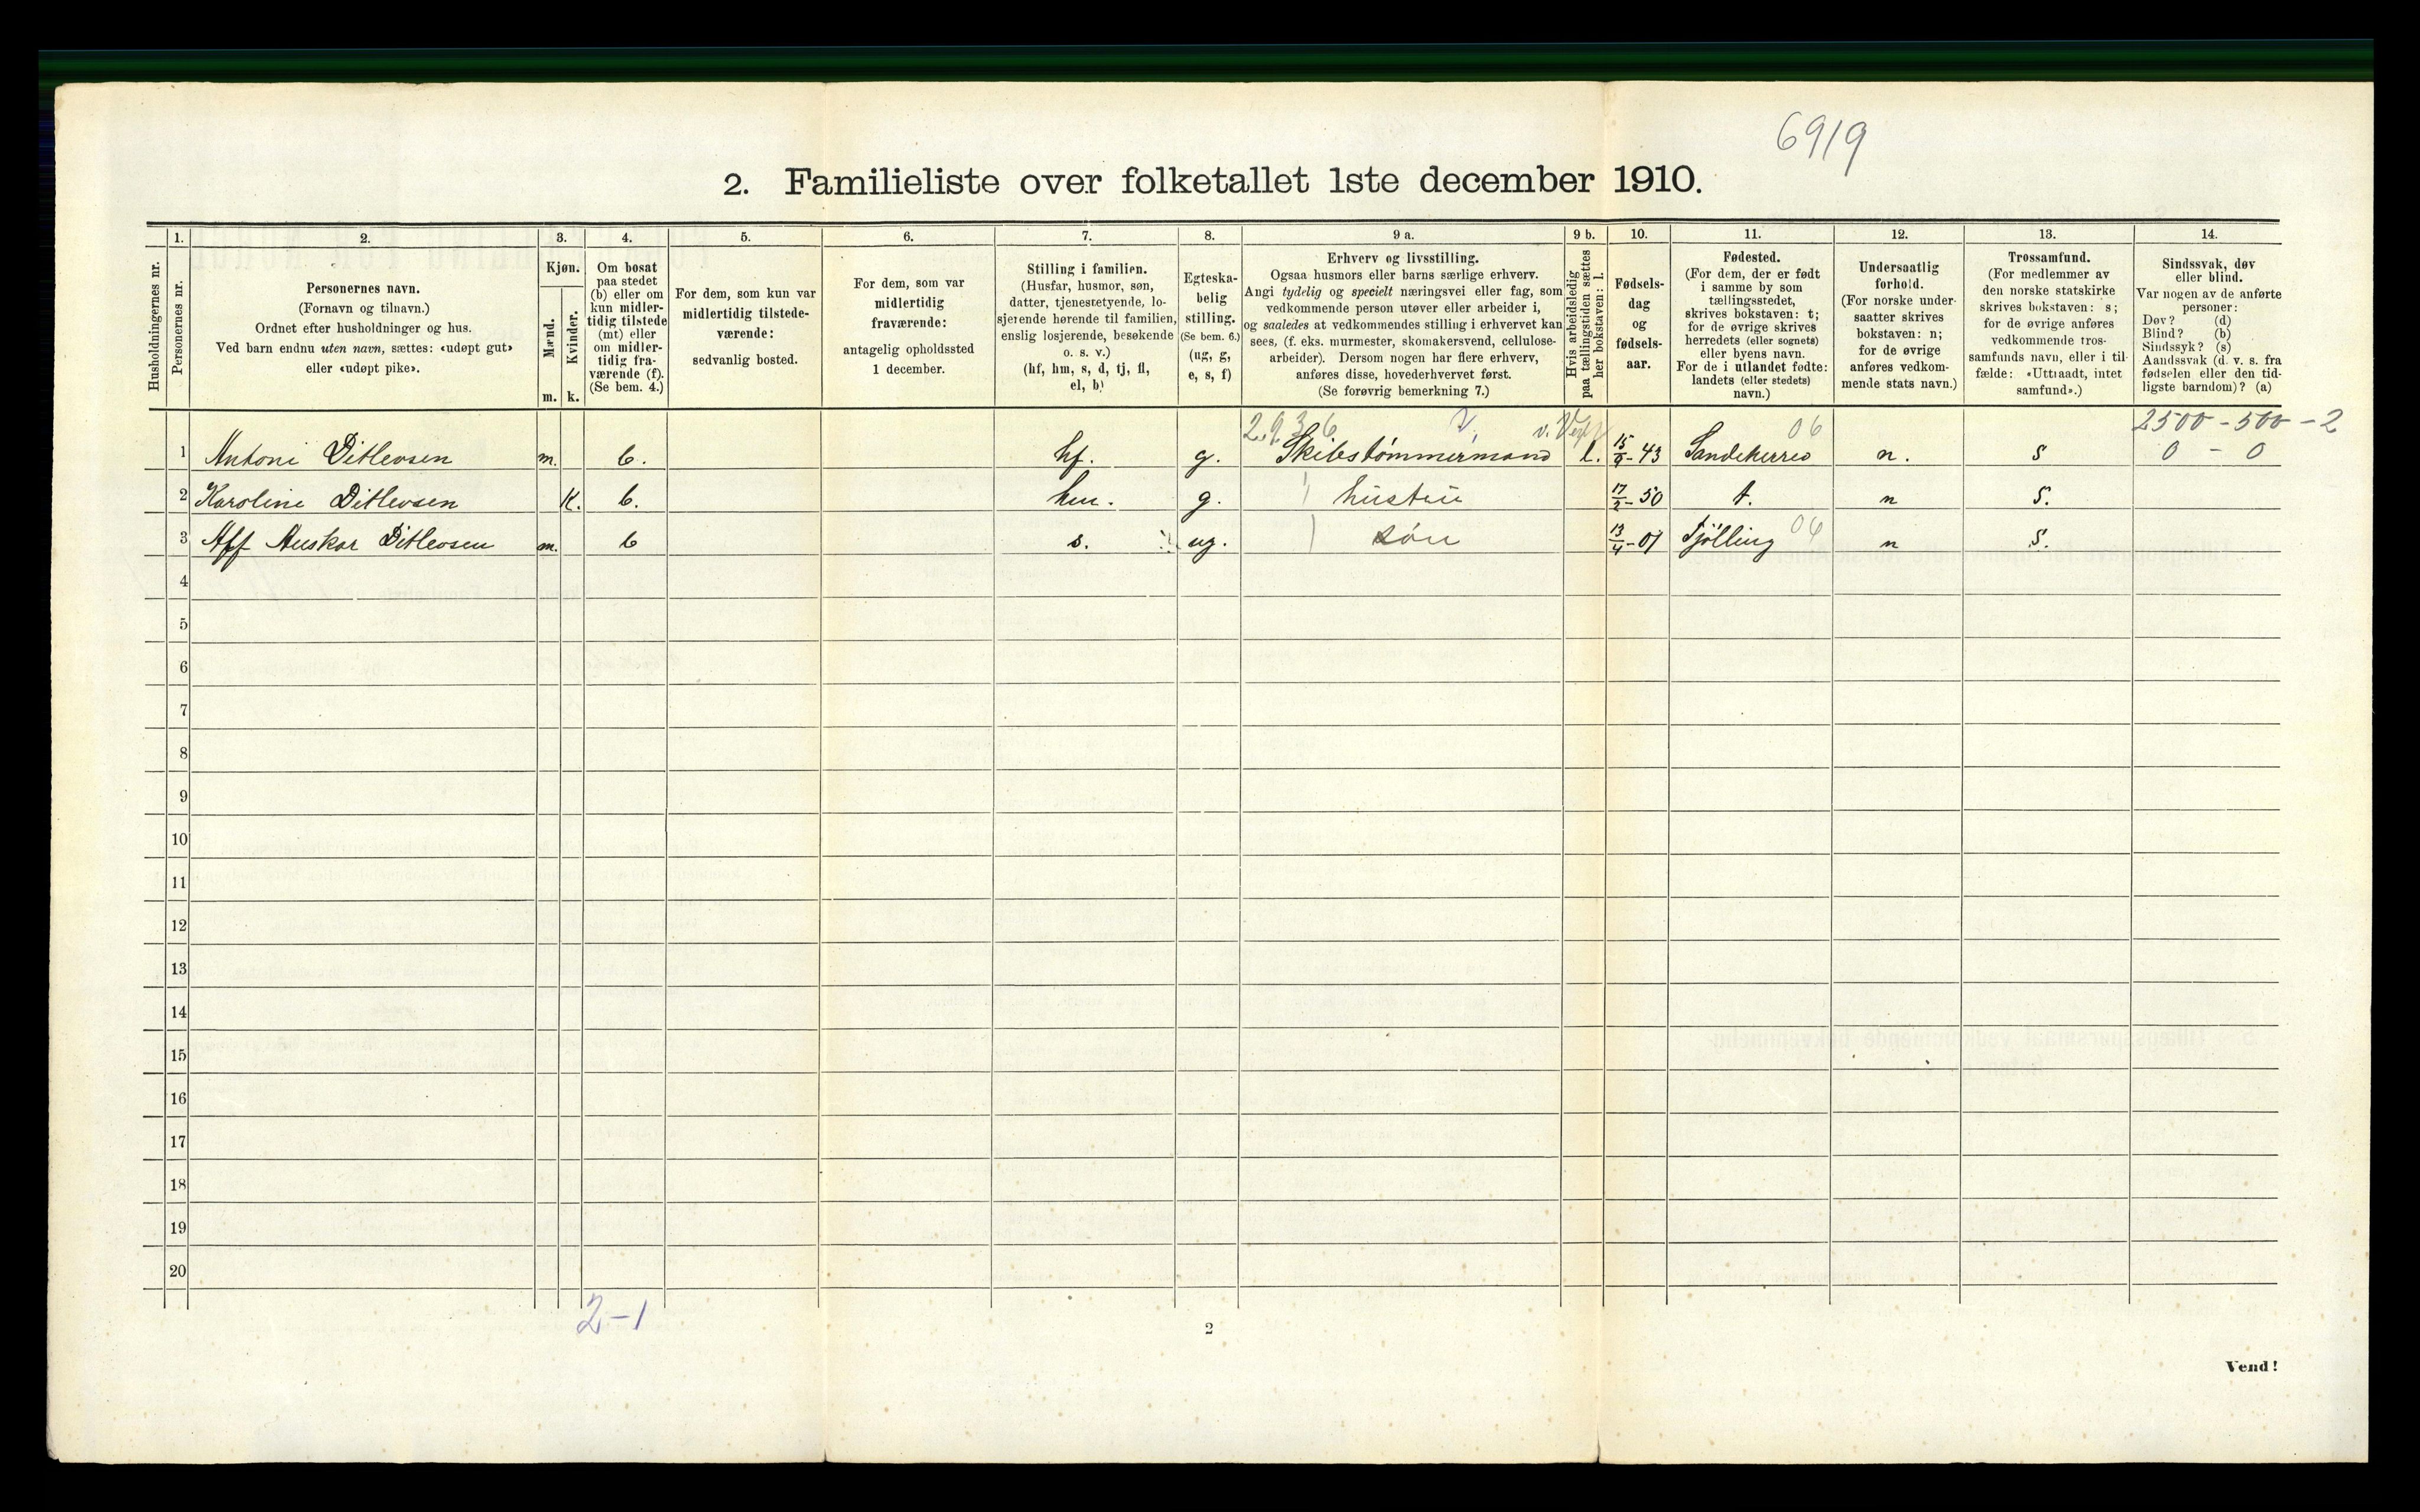 6919
2. Familieliste over folketallet 1ste december 1910.
Husholdningernes nr.
1.
Personernes nr.
2.
Personernes navn.
(Fornavn og tilnavn.)
Ordnet efter husholdninger og hus.
Ved barn endnu uten navn, sættes: «udøpt gut»
eller «udøpt pike».
3.
Kjøn.
Mænd.
Kvinder.
m. k.
4.
Om bosat
paa stedet
(b) eller om
kun midler-
tidig tilstede
(mt) eller
om midler-
tidig fra-
værende (f).
(Se bem. 4.)
5.
For dem, som kun var
midlertidig tilstede-
værende:
sedvanlig bosted.
6.
For dem, som var
midlertidig
fraværende:
antagelig opholdssted
1 december.
7.
Stilling i familien.
(Husfar, husmor, søn,
datter, tjenestetyende, lo-
sjerende hørende til familien,
enslig losjerende, besøkende
o. s. v.)
(hf, hm, s, d, tj, fl,
el, b)
8.
Egteska-
belig
stilling.
(Se bem. 6.)
(ug, g,
e, s, f)
9 a.
Erhverv og livsstilling.
Ogsaa husmors eller barns særlige erhverv.
Angi tydelig og specielt næringsvei eller fag, som
vedkommende person utøver eller arbeider i,
og saaledes at vedkommendes stilling i erhvervet kan
sees, (f. eks. murmester, skomakersvend, cellulose-
arbeider). Dersom nogen har flere erhverv,
anføres disse, hovederhvervet først.
(Se forøvrig bemerkning 7.)
9 b.
Hvis arbeidsledig
paa tællingstiden sættes
her bokstaven: l.
10.
Fødsels-
dag
og
fødsels-
aar.
11.
Fødested.
(For dem, der er født
i samme by som
tællingsstedet,
skrives bokstaven: t;
for de øvrige skrives
herredets (eller sognets)
eller byens navn.
For de i utlandet fødte:
landets (eller stedets)
navn.)
12.
Undersaatlig
forhold.
(For norske under-
saatter skrives
bokstaven: n;
for de øvrige
anføres vedkom-
mende stats navn.)
13.
Trossamfund.
(For medlemmer av
den norske statskirke
skrives bokstaven: s;
for de øvrige anføres
vedkommende tros-
samfunds navn, eller i til-
fælde: «Uttraadt, intet
samfund».)
14.
Sindssvak, døv
eller blind.
Var nogen av de anførte
personer:
Døv? (d)
Blind? (b)
Sindssyk? (s)
Aandssvak (d. v. s. fra
fødselen eller den tid-
ligste barndom)? (a)
2936 06 2500-500-2
1 Antoni Ditlevsen m. b. hf. g. Skibstømmermand l. 43 Sandeherred n. S 0 - 0
2 Karoline Ditlevsen K. b. hm. g. hustru 17/2-50 t. n S.
3 Alf Auskar Ditlevsen m. b s. ug. søn 13/4-01 Tjølling 06 n S.
4
5
6
7
8
9
10
11
12
13
14
15
16
17
18
19
20
2-1
2
Vend!